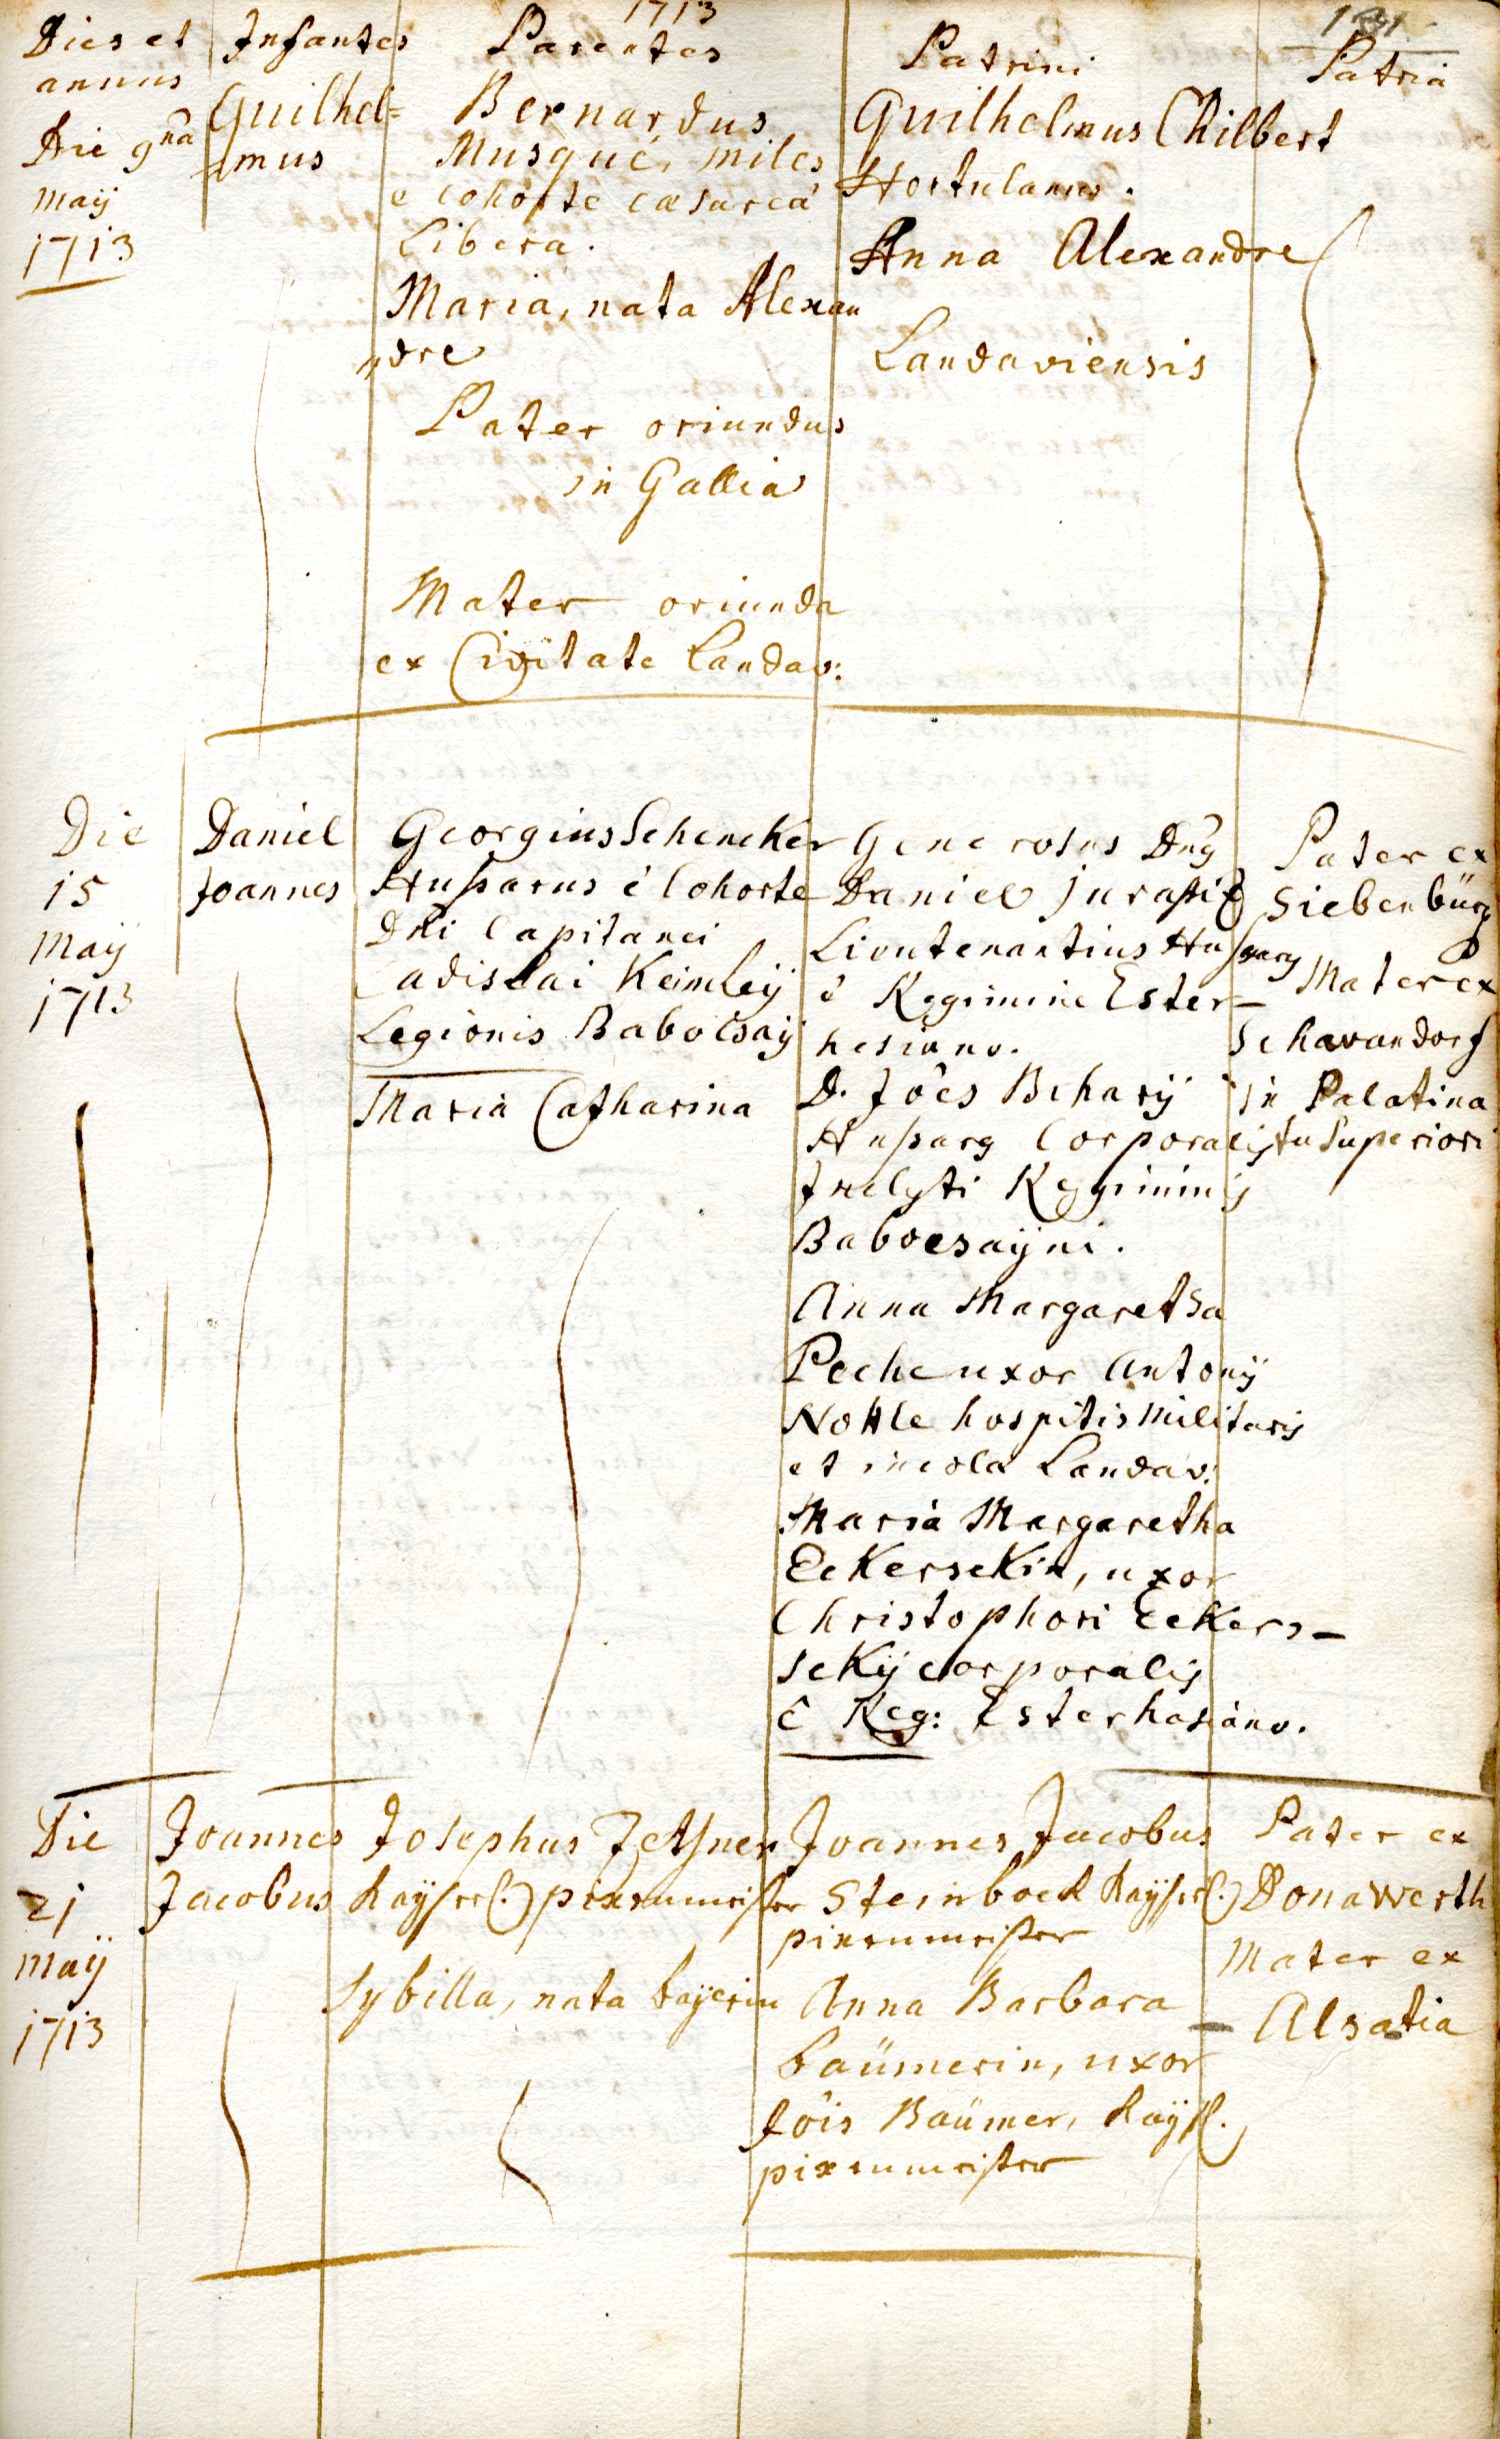 1713
131
Dies et
annus
Infantes
Parentes
Patrini
Patria
Die 9na
Maÿ
1713
Guilhel=
mus
Bernardus
Musqué, miles
e Cohorte Cæsareâ
Libera.
Maria, nata Alexan
ndre
Pater oriundus
in Gallia
Mater oriunda
ex Civitate Landav:
Guilhelmus Chilbert
Hortulanus.
Anna Alexandre
Landaviensis
Die
15
Maÿ
1713
Daniel
Joannes
Georgius Schencker
Hußarus è Cohorte
Dni Capitanei
Ladislai Keimleÿ
Legionis Babocsaÿ
Maria Catharina
Generosus Dng
Daniel Juraßiz
Lieutenantius Hußarg
è Regimine Ester-
hesiano.
D. Joês Beharÿ
Hußarg Corporalis
Inclyti Regiminis
Babocsaÿni.
Anna Margaretha
Peche uxor Antonÿ
Nottle hospitis militaris
et incola Landav:
Maria Margaretha
Eckersckin, uxor
Christophori Eckers-
sckÿ corporalis
è Reg: Esterhasiano.
Pater ex
Siebenbürg
Mater ex
Schwandorf
in Palatina
tu Superiori
Die
21
Maÿ
1713
Joannes
Jacobus
Josephus Zettner
Kaÿserl. pixenmeister
Sybilla, nata baÿerin
Joannes Jacobus
Steinbock Kaÿserl.
pixenmeister
Anna Barbara
baümerin, uxor
Jois Baümer, Kaÿsl.
pixenmeister
Pater ex
Donawerth
Mater ex
Alsatia